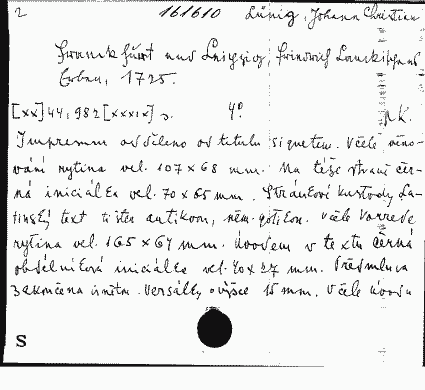 2 161610 Lünig, Johann Christian
Franckfurt und Leipzig, Friedrich Lanckischens
Erben, 1725.
[XX] 44, 982 [XXXIX] s. 4°. K.
Impressum odděleno od titulu signetem. V čele věno-
vání rytina vel. 107 x 68 mm. Na téže straně čer-
ná iniciálka vel. 70 x 65 mm. Stránkové kustody. La-
tinský text tištěn antikvou, něm. gotikou. V čele Vorrede
rytina vel. 165 x 67 mm. Úvodem v textu černá
obdélníková iniciálka vel. 40 x 27 mm. Předmluva
zakončena vinětou. Versálky o výšce 15 mm. V čele úvodu
S